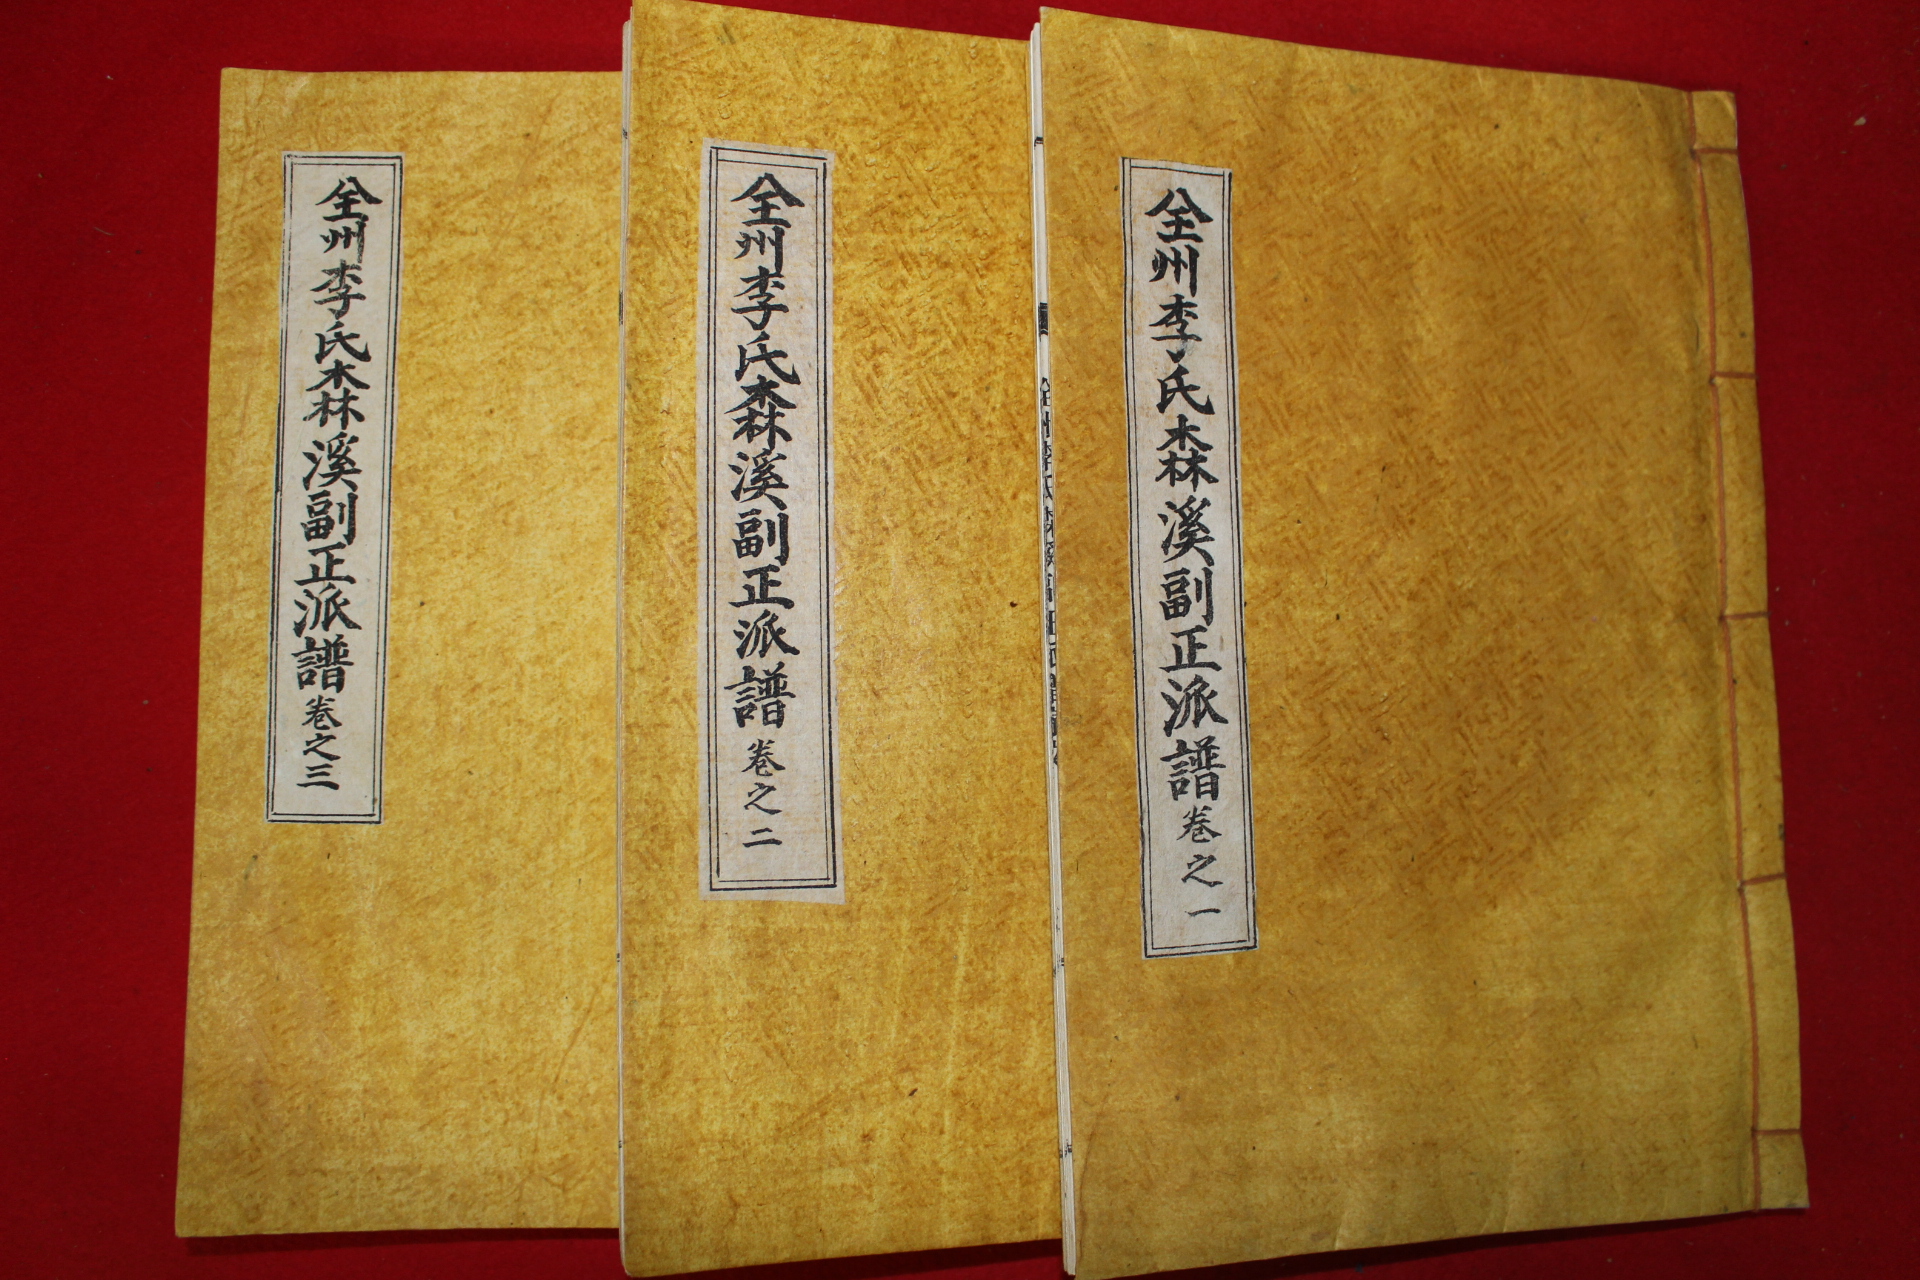 全州李氏森溪副正派譜卷之一
全州李氏森溪副正派譜卷之二
全州李氏森溪副正派譜卷之三